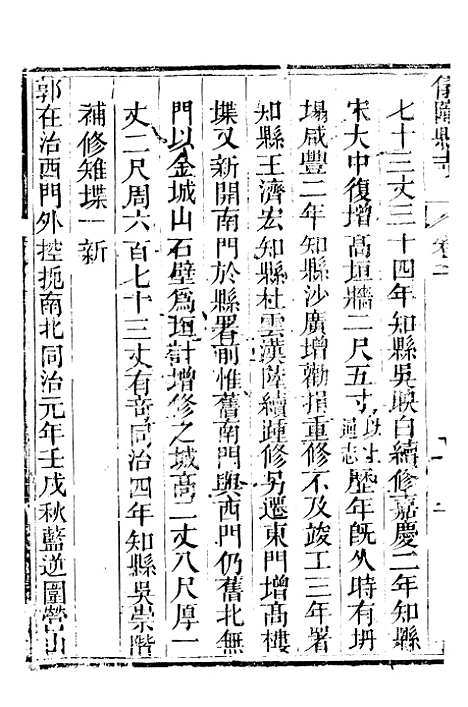 儀隴縣志 卷二
七十三丈三十四年知縣吳映白續修嘉慶二年知縣
宋大中復增高垣牆一尺五寸以上通志歷年旣久時有坍
塌咸豐二年知縣沙廣增勸捐重修不及竣工三年署
知縣王濟宏知縣杜雲漢陸續踵修另遷東門增高樓
堞又新開南門於縣署前惟舊南門與西門仍舊北無
門以金城山石壁爲垣計增修之城高二丈八尺厚一
丈二尺周六百七十三丈有奇同治四年知縣吳崇階
補修雉堞一新
郭在治西門外控扼南北同治元年壬戌秋藍逆圍營山